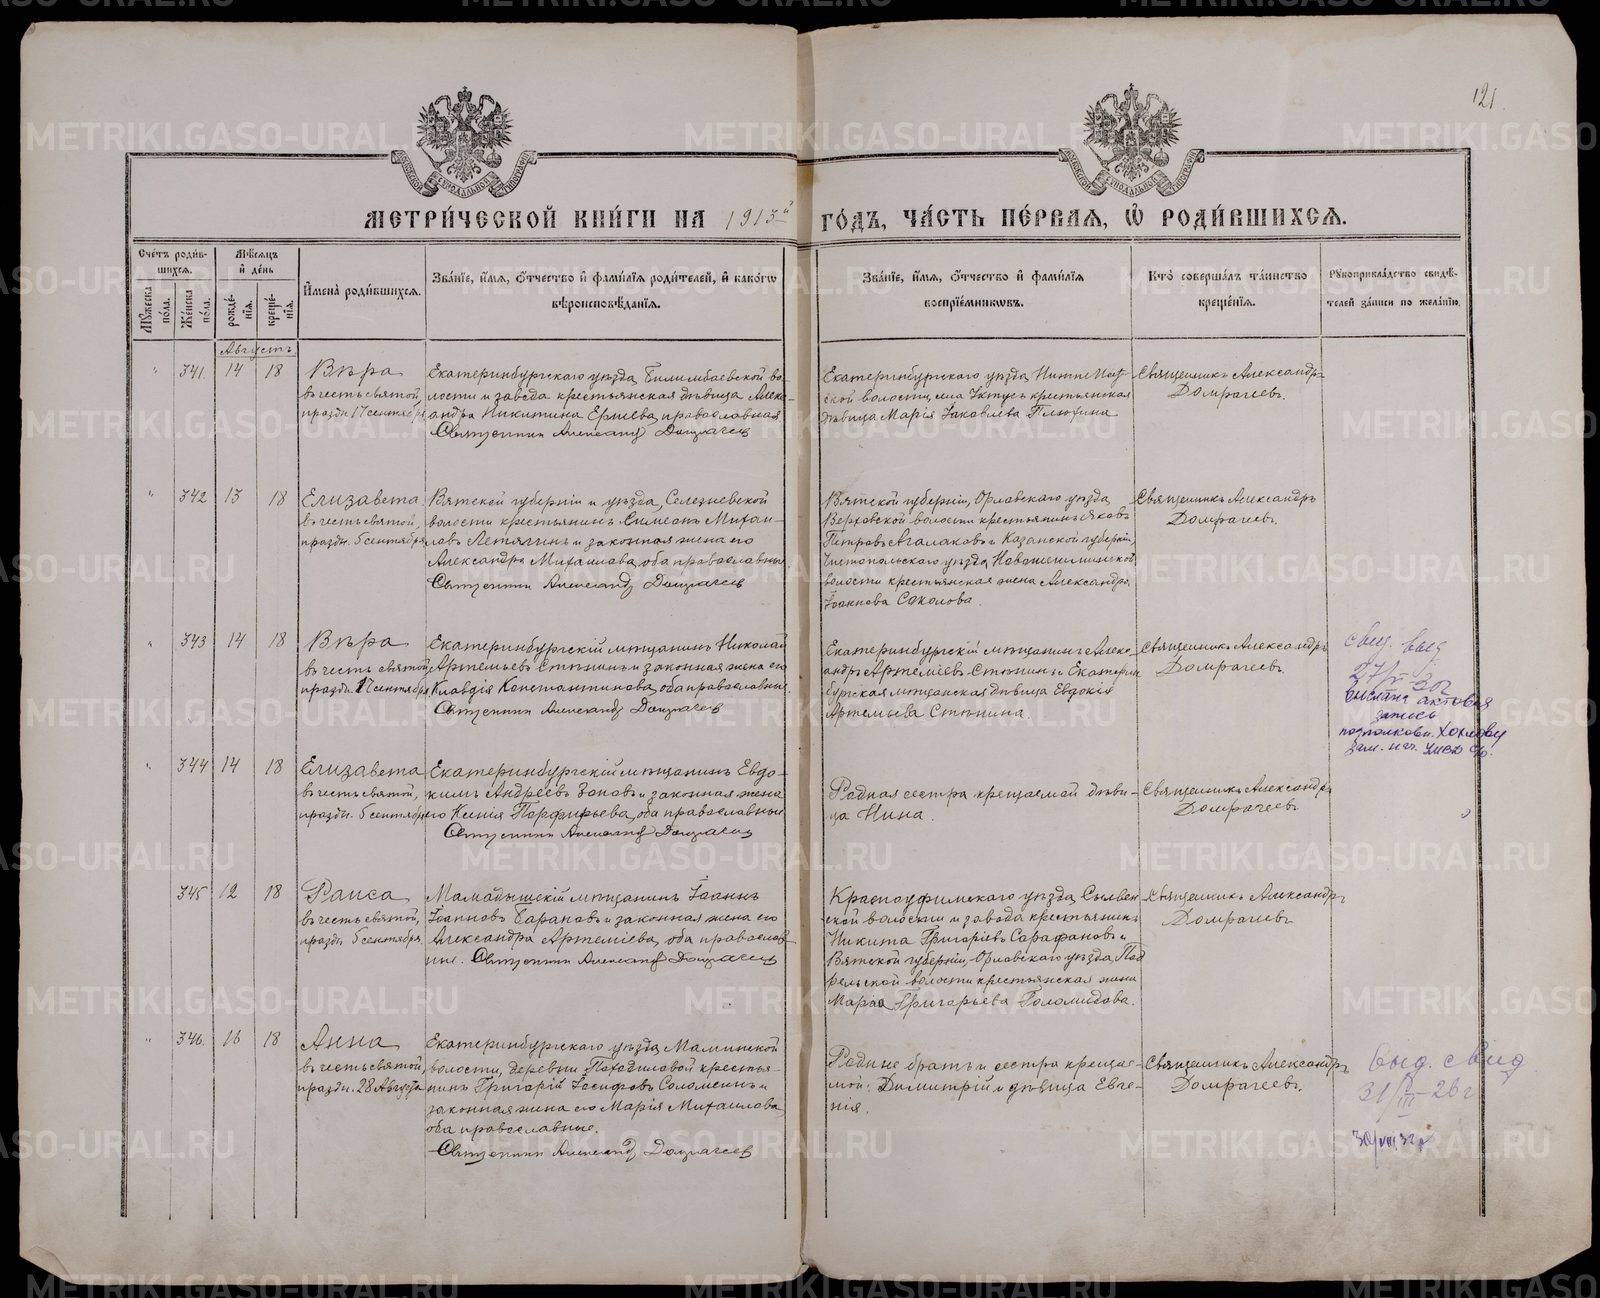 121.
МЕТРИ́ЧЕСКОЙ КНИ́ГИ НА 1913й ГО́ДЪ, ЧА́СТЬ ПЕ́РВАЯ, Ѡ҆ РОДИ́ВШИХСЯ.
Сче́тъ роди́в-
шихся.
Мꙋ́жеска по́ла.
Же́нска по́ла.
Мѣ́сяцъ и҆ де́нь
рожде́-
нїя.
креще́-
нїя.
И҆мена̀ роди́вшихся.
Зва́нїе, и҆́мя, ѻ҆́тчество и҆ фами́лїя роди́телей, и҆ како́гѡ
вѣроисповѣ́данїя.
Зва́нїе, и҆́мя, ѻ҆́тчество и҆ фами́лїя
воспрїе́мникѡвъ.
Кто̀ соверша́лъ та́инство
креще́нїя.
Рꙋкоприкла́дство свидѣ́-
телей за́писи по жела́нїю.
Августъ
" 341. 14 18
Вѣра
въ честь святой,
праздн. 17 сентября
Екатеринбургскаго уѣзда, Билимбаевской во-
лости и завода крестьянская дѣвица Алекс-
андра Никитина Ермева, православная
Священникъ Александръ Домрачевъ
Екатеринбургскаго уѣзда Нижне-Исет-
ской волости, села Уктусъ крестьянская
дѣвица Марія Іаковлева Плюхина
Священникъ Александръ
Домрачевъ.
" 342 13 18
Елизавета
въ честь святой,
праздн. 5 сентября
Вятской губерніи и уѣзда, Селезневской
волости крестьянинъ Симеонъ Михаи-
ловъ Летягинъ и законная жена его
Александра Михаилова, оба православные.
Священникъ Александръ Домрачевъ
Вятской губерніи, Орловскаго уѣзда,
Верховской волости крестьянинъ Яковъ
Петровъ Агалаковъ и Казанской губерніи,
Чистопольскаго уѣзда, Новошешминской
волости крестьянская жена Александра
Іоаннова Соколова.
Священникъ Александръ
Домрачевъ.
" 343 14 18
Вѣра
въ честь святой
праздн. 17 сентября
Екатеринбургскій мѣщанинъ Николай
Артемьевъ Стѣнинъ и законная жена его
Клавдія Константинова, оба православные.
Священникъ Александръ Домрачевъ
Екатеринбургскій мѣщанинъ Алекс-
андръ Артеміевъ Стѣнинъ и Екатерин-
бургская мѣщанская дѣвица Евдокія
Артемьева Стѣнина.
Священникъ Александръ
Домрачевъ
актовая
запись
подполковн.
" 344 14 18
Елизавета
въ честь святой,
праздн. 5 сентября
Екатеринбургскій мѣщанинъ Евдо-
кимъ Андреевъ Зоновъ и законная жена
его Ксенія Порфирьева, оба православные
Священникъ Александръ Домрачевъ
Родная сестра крещаемой дѣви-
ца Нина.
Священникъ Александръ
Домрачевъ
345 12 18
Раиса
въ честь святой,
праздн. 5 сентября.
Мамадышскій мѣщанинъ Іоаннъ
Іоанновъ Барановъ и законная жена его
Александра Артеміева, оба православ-
ные. Священникъ Александръ Домрачевъ
Красноуфимскаго уѣзда, Сылвен-
ской волости и завода крестьянинъ
Никита Григоріевъ Сарафановъ и
Вятской губерніи, Орловскаго уѣзда, Под-
рельской волости крестьянская жена
Марѳа Григорьева Голомидова.
Священникъ Александръ
Домрачевъ
" 346. 16 18
Анна
въ честь святой,
праздн. 28 Августа
Екатеринбургскаго уѣзда, Маминской
волости, деревни Походиловой крестья-
нинъ Григорій Іосифовъ Соломеинъ и
законная жена его Марія Михаилова,
оба православные.
Священникъ Александръ Домрачевъ
Родные братъ и сестра крещае-
мой: Димитрій и дѣвица Евге-
нія.
Священникъ Александръ
Домрачевъ.
выд. свид.
30/VIII 32 г